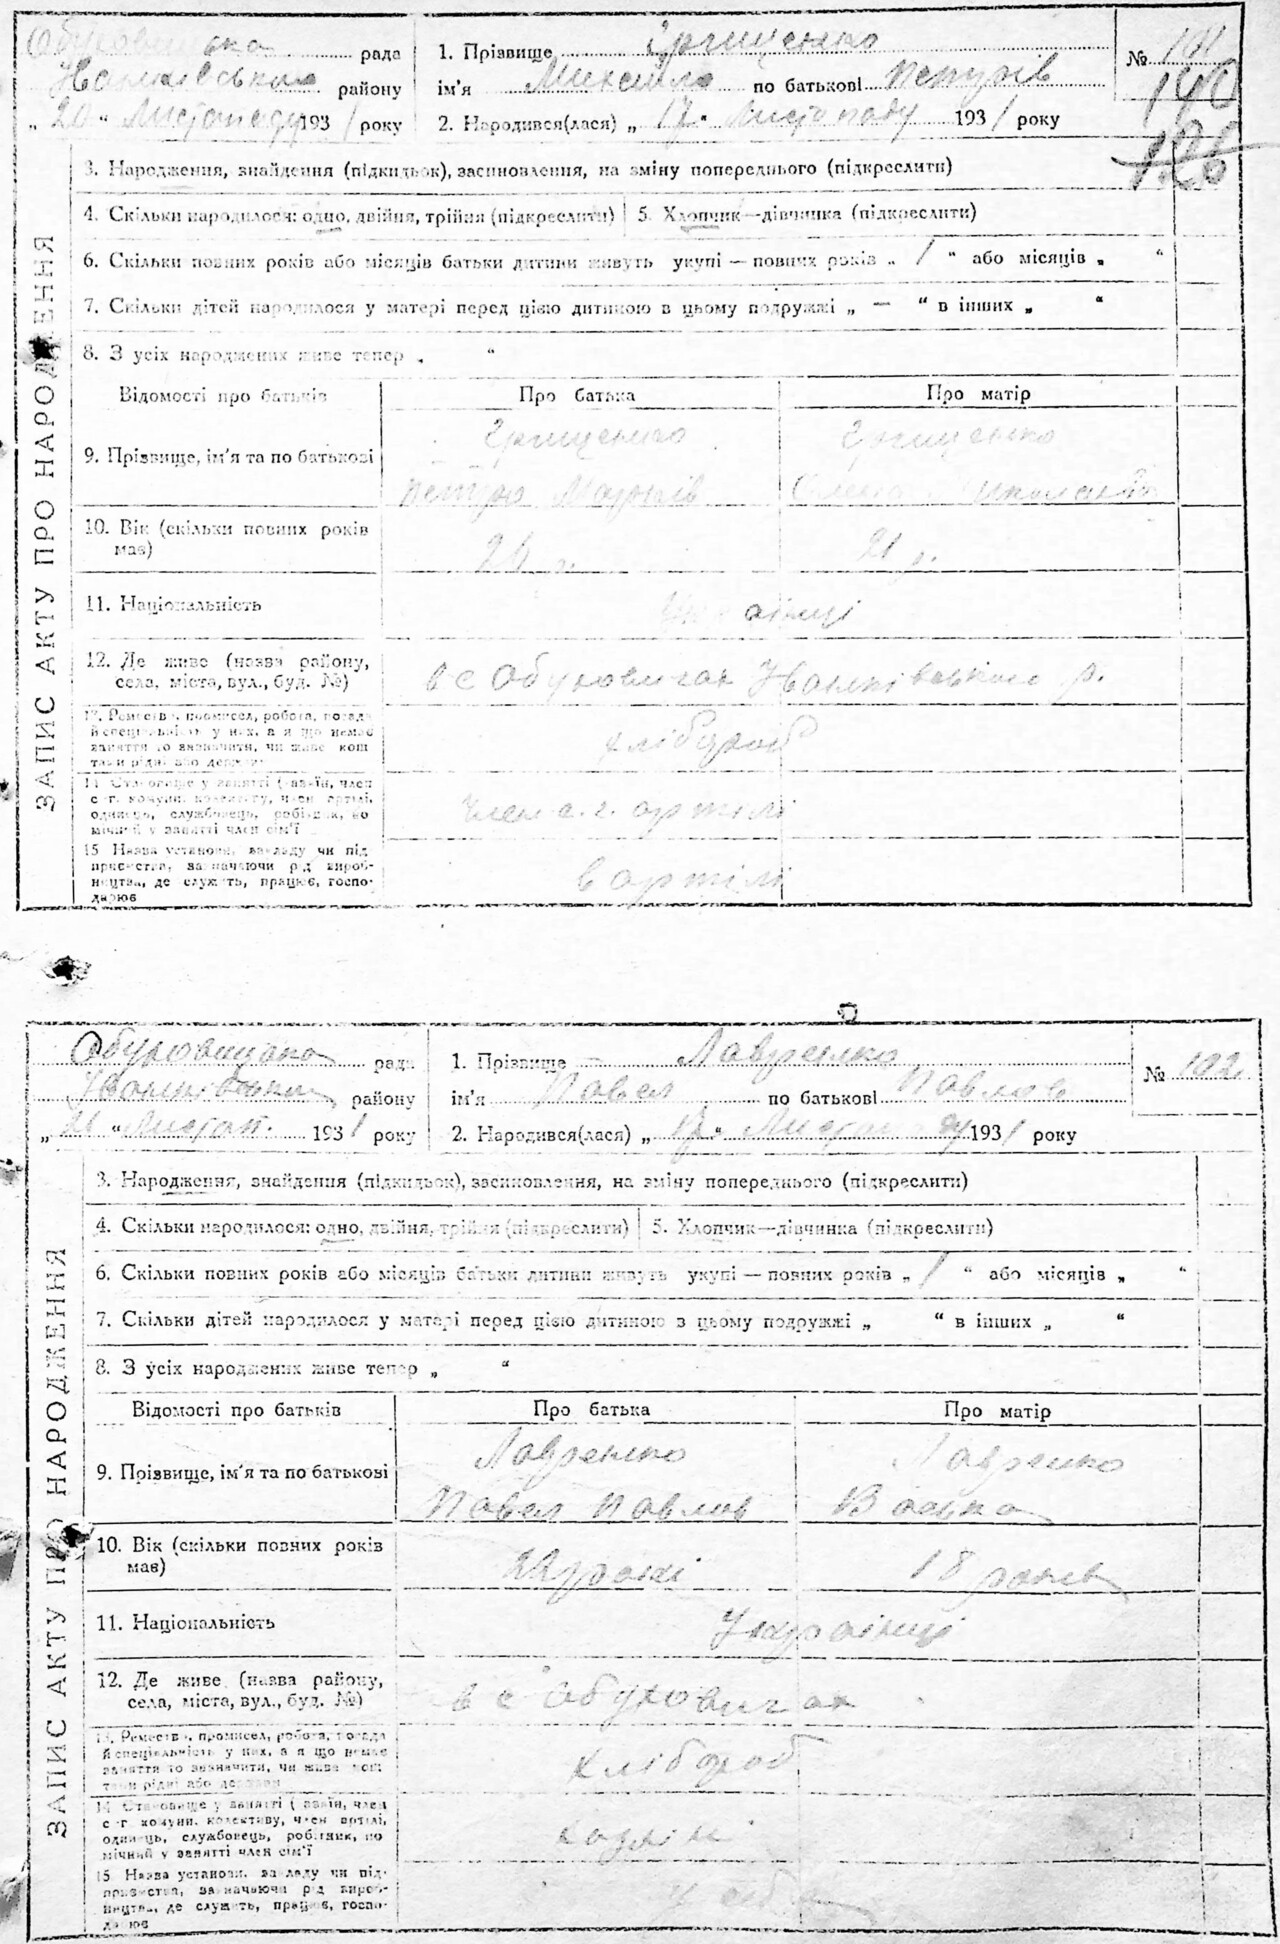 Обуховицька рада
Іванківського району
„ 20 “ Листопаду 1931 року
1. Прізвище Грищенко
ім'я Михайло по батькові Петрів
2. Народився(лася) „ 17 “ Листопаду 1931 року
№ 101
140
126
ЗАПИС АКТУ ПРО НАРОДЖЕННЯ
3. Народження, знайдення (підкидьок), засиновлення, на зміну попереднього (підкреслити)
4. Скільки народилося: одно, двійня, трійня (підкреслити) 5. Хлопчик—дівчинка (підкреслити)
6. Скільки повних років або місяців батьки дитини живуть укупі — повних років „ 1 “ або місяців „ “
7. Скільки дітей народилося у матері перед цією дитиною в цьому подружжі „ — “ в інших „ “
8. З усіх народжених живе тепер „ “
Відомості про батьків Про батька Про матір
9. Прізвище, ім'я та по батькові
Грищенко Грищенко
Петро Олена
10. Вік (скільки повних років має)
26 р. 21 р.
11. Національність Українці
12. Де живе (назва району, села, міста, вул., буд. №)
в с Обуховичах Іванківського р.
13. Ремество, промисел, робота, посада
й спеціяльність у них, а якщо немає
заняття то зазначити, чи живе кош
тами рідні або держави
хлібороб
14. Становище у занятті (хазяїн, член
с.-г. комуни, колективу, член артілі,
одинець, службовець, робітник, по
мічний у занятті член сім'ї
член с. г. артілі
15. Назва установи, закладу чи під
приємства, зазначаючи рід вироб-
ництва, де служить, працює, госпо-
дарює
в артілі
Обуховицька рада
Іванківськ району
„ 21 “ Листоп. 1931 року
1. Прізвище Лавренко
ім'я Павел по батькові Павлов
2. Народився(лася) „ 17 “ Листопаду 1931 року
№ 102
ЗАПИС АКТУ ПРО НАРОДЖЕННЯ
3. Народження, знайдення (підкидьок), засиновлення, на зміну попереднього (підкреслити)
4. Скільки народилося: одно, двійня, трійня (підкреслити) 5. Хлопчик—дівчинка (підкреслити)
6. Скільки повних років або місяців батьки дитини живуть укупі — повних років „ 1 “ або місяців „ “
7. Скільки дітей народилося у матері перед цією дитиною в цьому подружжі „ “ в інших „ “
8. З усіх народжених живе тепер „ “
Відомості про батьків Про батька Про матір
9. Прізвище, ім'я та по батькові
Лавренко Лавренко
Павел Павлов
10. Вік (скільки повних років має)
22 роки 18 років
11. Національність Українці
12. Де живе (назва району, села, міста, вул., буд. №)
в с Обуховичах
13. Ремество, промисел, робота, посада
й спеціяльність у них, а якщо немає
заняття то зазначити, чи живе кош
тами рідні або держави
хлібороб
14. Становище у занятті (хазяїн, член
с.-г. комуни, колективу, член артілі,
одинець, службовець, робітник, по
мічний у занятті член сім'ї
15. Назва установи, закладу чи під-
приємства, зазначаючи рід вироб-
ництва, де служить, працює, госпо-
дарює
у себе